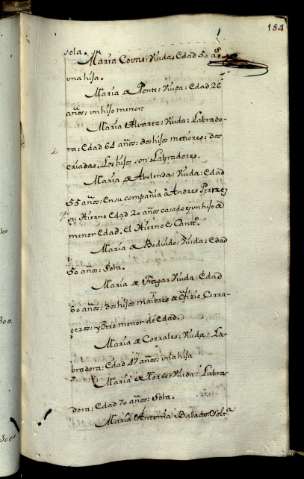 184
sola.
María Couto: Viuda: Edad 50 a.s
una hija.
María de Ponte: Viuda: Edad 26
años: un hijo menor
María Alvarez: Viuda: Labrado-
ra: Edad 64 años: dos hijos mayores: dos
criadas. Los hijos son Labradores.
María de Viuda: Edad
55 años: en su compañía à Andres Perez
su Yerno Edad 20 años casado y un hijo de
menor edad. El Yerno es
María de Viuda: Edad
50 años: Sola.
María de Viuda: Edad
60 años: dos hijos maiores de oficio
y otro menor de Edad.
María de Corrales: Viuda: La-
bradora: Edad 47 años: una hija
María de Viuda: Labra-
dora: Edad 70 años: Sola.
María Antonia